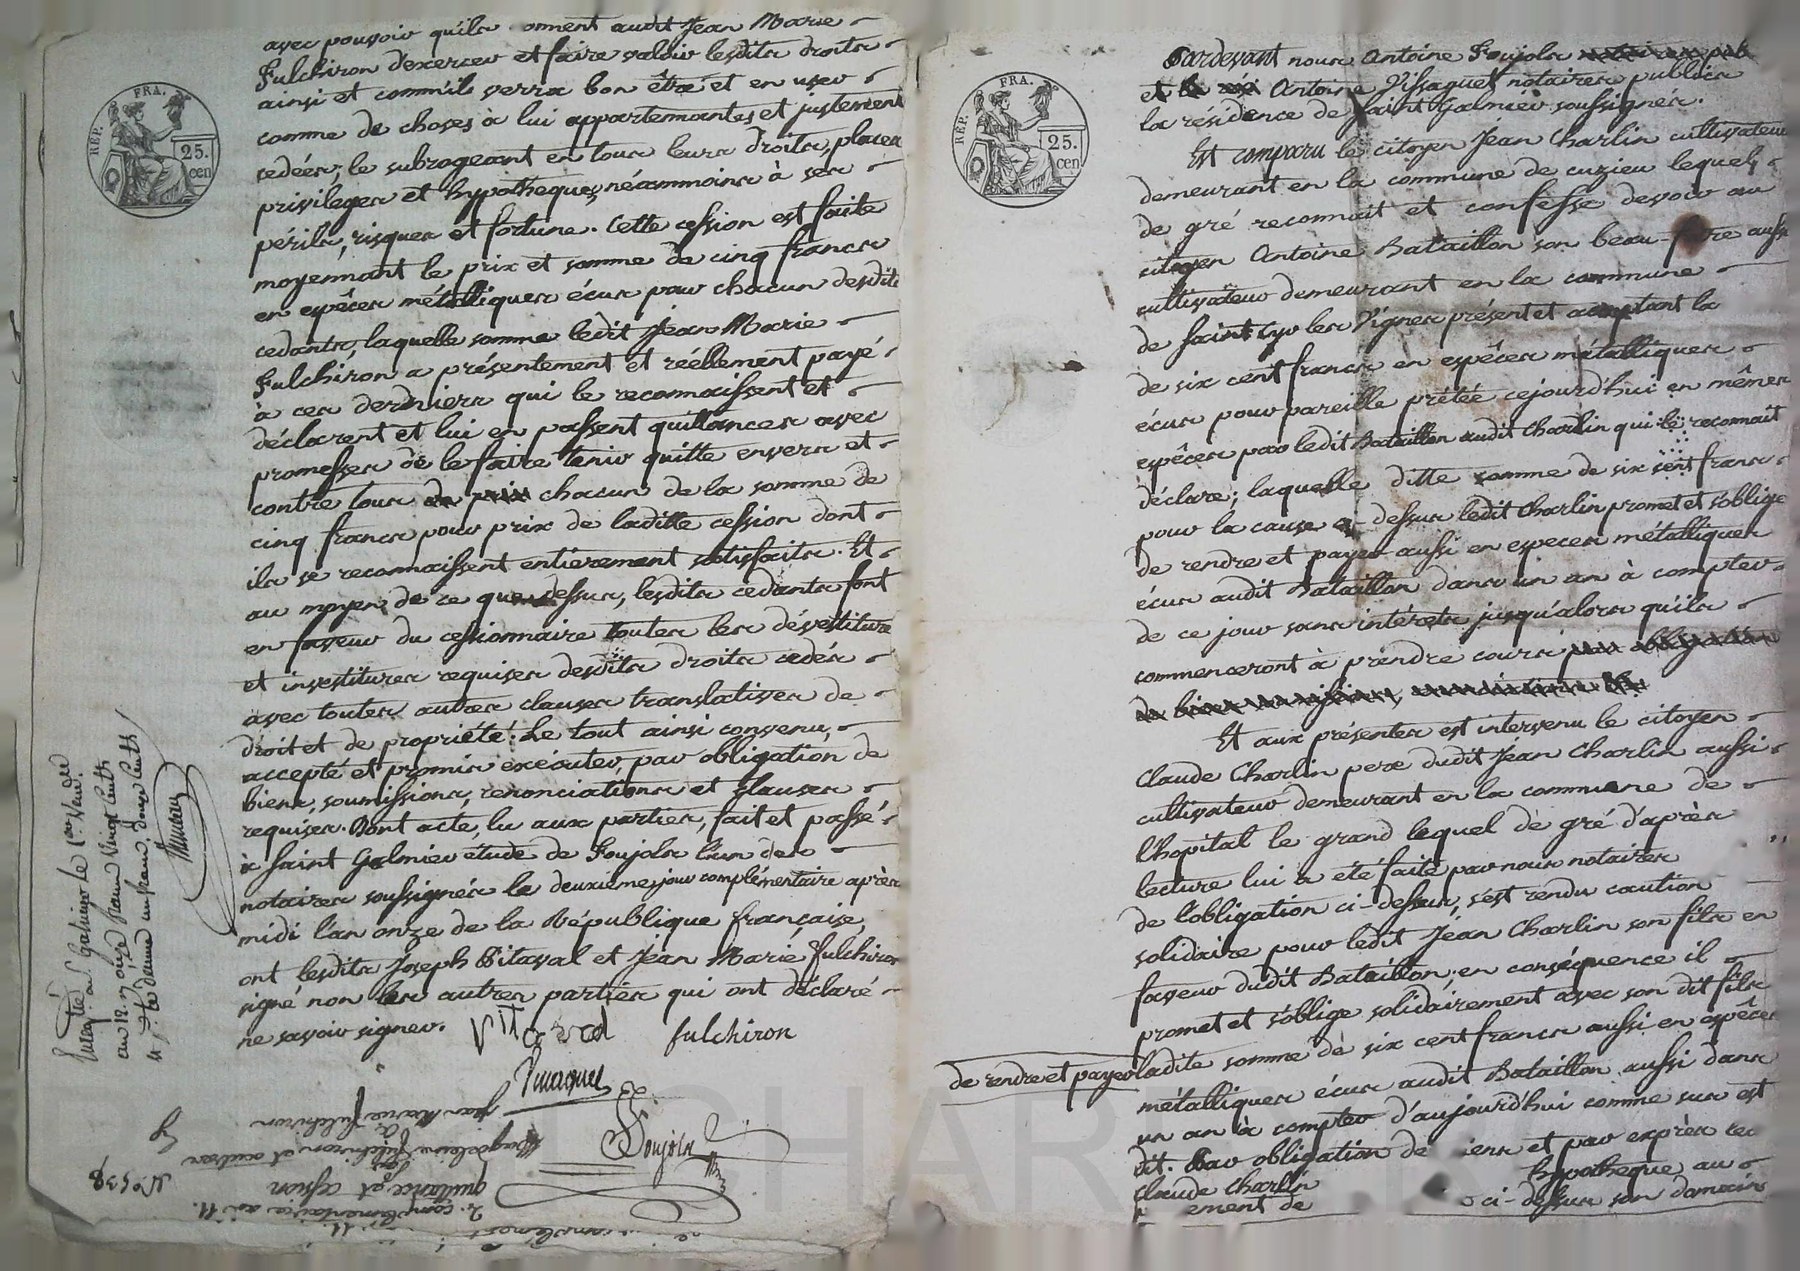 avec pouvoir qu'ils donnent audit Jean Marie
Fulchiron d'exercer et faire valoir lesdits droits
ainsi et comm'il verra bon être et en user
comme de choses à lui appartennantes et justement
cedées, le subrogeant en tous leurs droits, places
privileges et hypotheques, néammoins à ses
périls, risques et fortune. Cette cession est faite
moyennant le prix et somme de cinq francs
en espêces métalliques écus pour chacun desdits
cedants, laquelle somme ledit Jean Marie
Fulchiron a présentement et réellement payé
à ces derniers qui le reconnaissent et
déclarent et lui en passent quittances avec
promesses de le faire tenir quitte envers et
contre tous chacun de la somme de
cinq francs pour prix de laditte cession dont
ils se reconnaissent entièrement satisfaits. Et
au moyen de ce que dessus, lesdits cedants font
en faveur du cessionnaire toutes les dévestitures
et investitures requises desdits droits cedés
avec toutes autres clauses translatives de
droit et de propriété. Le tout ainsi convenu,
accepté et promis exécuter, par obligation de
biens, soumissions, renonciations et clauses
requises. Dont acte, lu aux parties, fait et passé
à Saint Galmier étude de Foujols l'un des
notaires soussignés le deuxième jour complémentaire après
midi l'an onze de la République française,
ont lesdits Joseph Vitaval et Jean Marie Fulchiron
signé non les autres parties qui ont déclaré
ne savoir signer.
fulchiron
Foujols
Enregistré à St Galmier le 1er Vendre
an 12.
N° 538
quittance, et cession
Magdelaine fulchiron et autres
à
Jean Marie fulchiron
2e complementaire an 11.
REP. FRA.
25.
cen
Pardevant nous Antoine Foujols
et Antoine Vissaguet notaires publics
la résidence de Saint Galmier soussignés.
Est comparu le citoyen Jean Charlin cultivateur
demeurant en la commune de cuzieu lequel
de gré reconnait et confesse devoir au
citoyen Antoine Bataillon son beau-père aussi
cultivateur demeurant en la commune
de Saint Cyr les Vignes présent et acceptant la
de six cent francs en espêces métalliques
écus pour pareille prêtée cejourd'hui en mêmes
espêces par ledit Bataillon audit Charlin qui le reconnait
déclare; laquelle ditte somme de six cent francs
pour la cause ci-dessus ledit Charlin promet et s'oblige
de rendre et payer aussi en especes métalliques
écus audit Bataillon dans un an à compter
de ce jour sans intérets jusqu'alors qu'ils
commenceront à prendre cours
Et aux présentes est intervenu le citoyen
Claude Charlin pere dudit Jean Charlin aussi
cultivateur demeurant en la commune de
l'hopital le grand lequel de gré d'après
lecture lui a été faite par nous notaires
de l'obligation ci-dessus, s'est rendu caution
solidaire pour ledit Jean Charlin son fils en
faveur dudit Bataillon; en conséquence il
promet et s'oblige solidairement avec son dit fils
de rendre et payer ladite somme de six cent francs aussi en espêces
métalliques écus audit Bataillon aussi dans
un an à compter d'aujourd'hui comme sus est
dit. Par obligation de biens et par exprès le
Claude Charlin hypotheque au
ement de ci-dessus son domaine
REP. FRA.
25.
cen